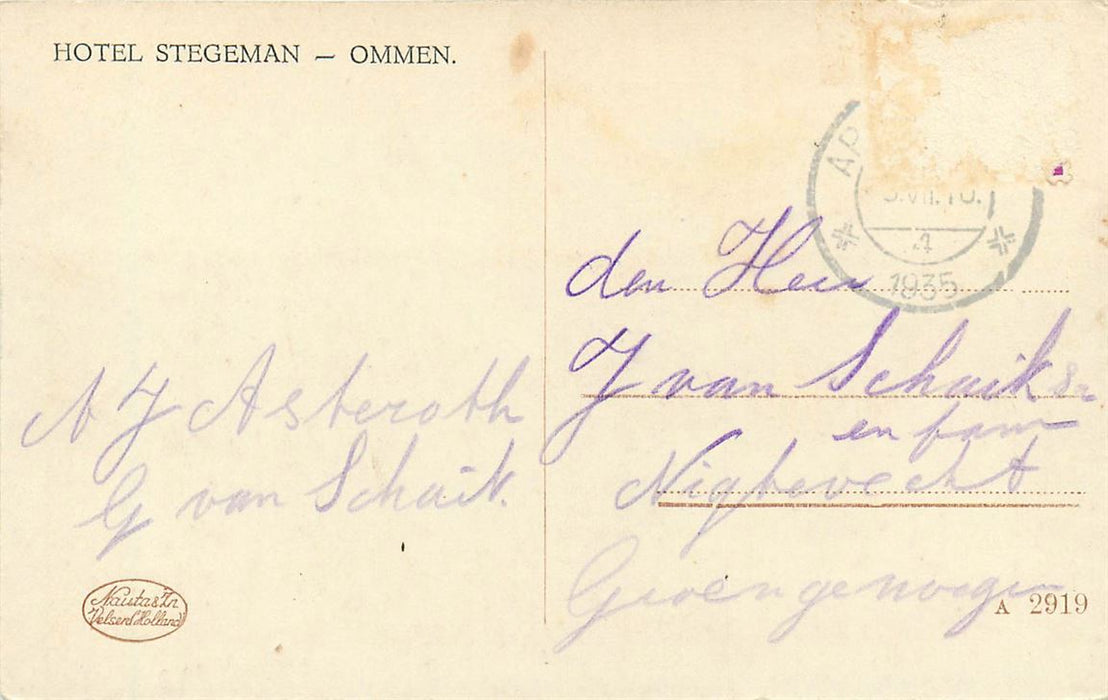 HOTEL STEGEMAN — OMMEN.
AP
VII.
4
1935
den Heer
J van Schaik Sr
en fam
Nigtevecht
A J Asteroth
G van Schaik.
Nauta & Zn
Velsen (Holland)
A 2919